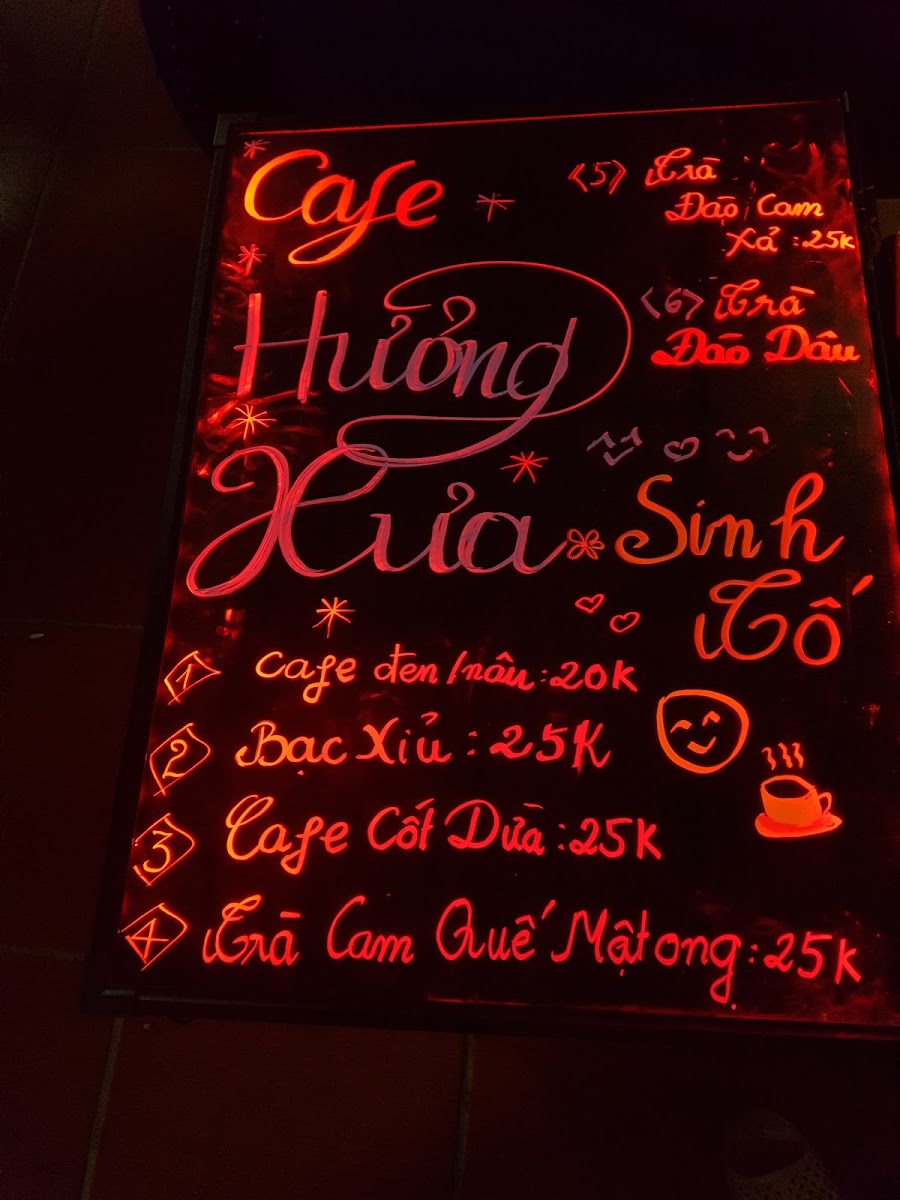 Cafe
Hưởng
Xưa
<1> Cafe đen/nâu: 20K
<2> Bạc Xỉu: 25K
<3> Cafe Cốt Dừa: 25K
<4> Trà Cam Quế Mật ong: 25K
<5> Trà
Đào Cam
Xả: 25K
<6> Trà
Đào Dâu
Sinh
Tố